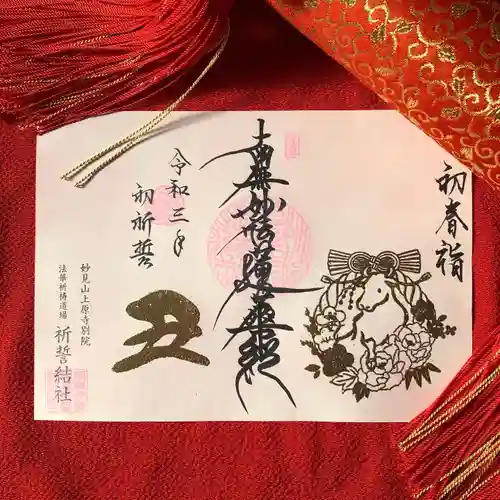 初春福
南無妙法蓮華経
令和三年
初祈誓
丑
妙見山上原寺別院
法華祈祷道場
祈誓結社